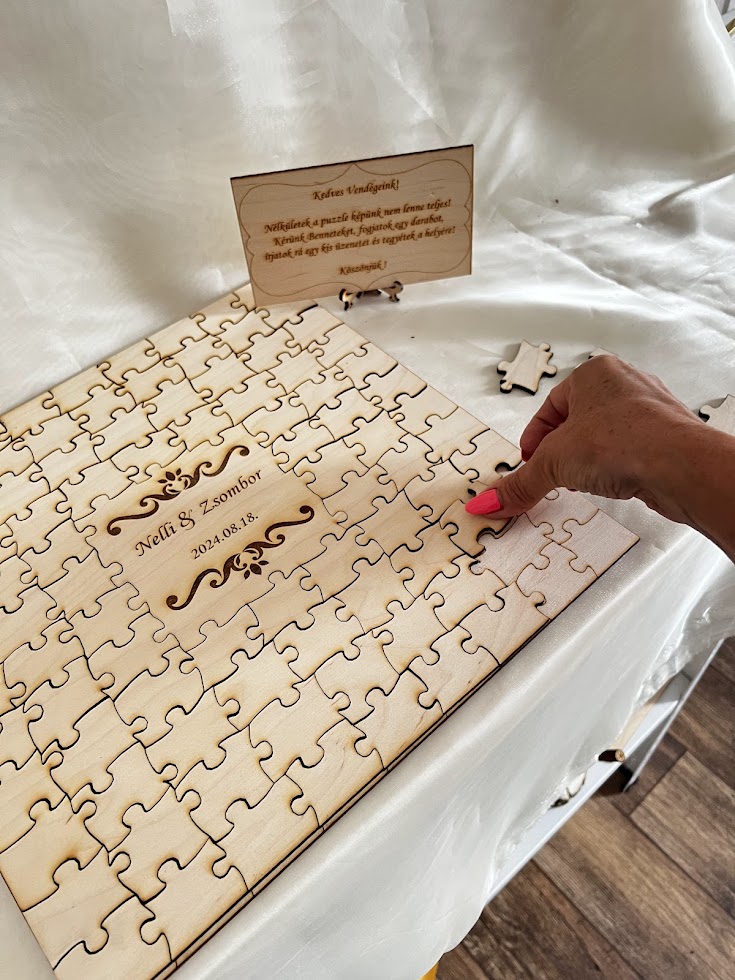 Kedves Vendégeink!
Nélkületek a puzzle képünk nem lenne teljes!
Kérünk Benneteket, fogjatok egy darabot,
írjatok rá egy kis üzenetet és tegyétek a helyére!
Köszönjük !
Nelli & Zsombor
2024.08.18.